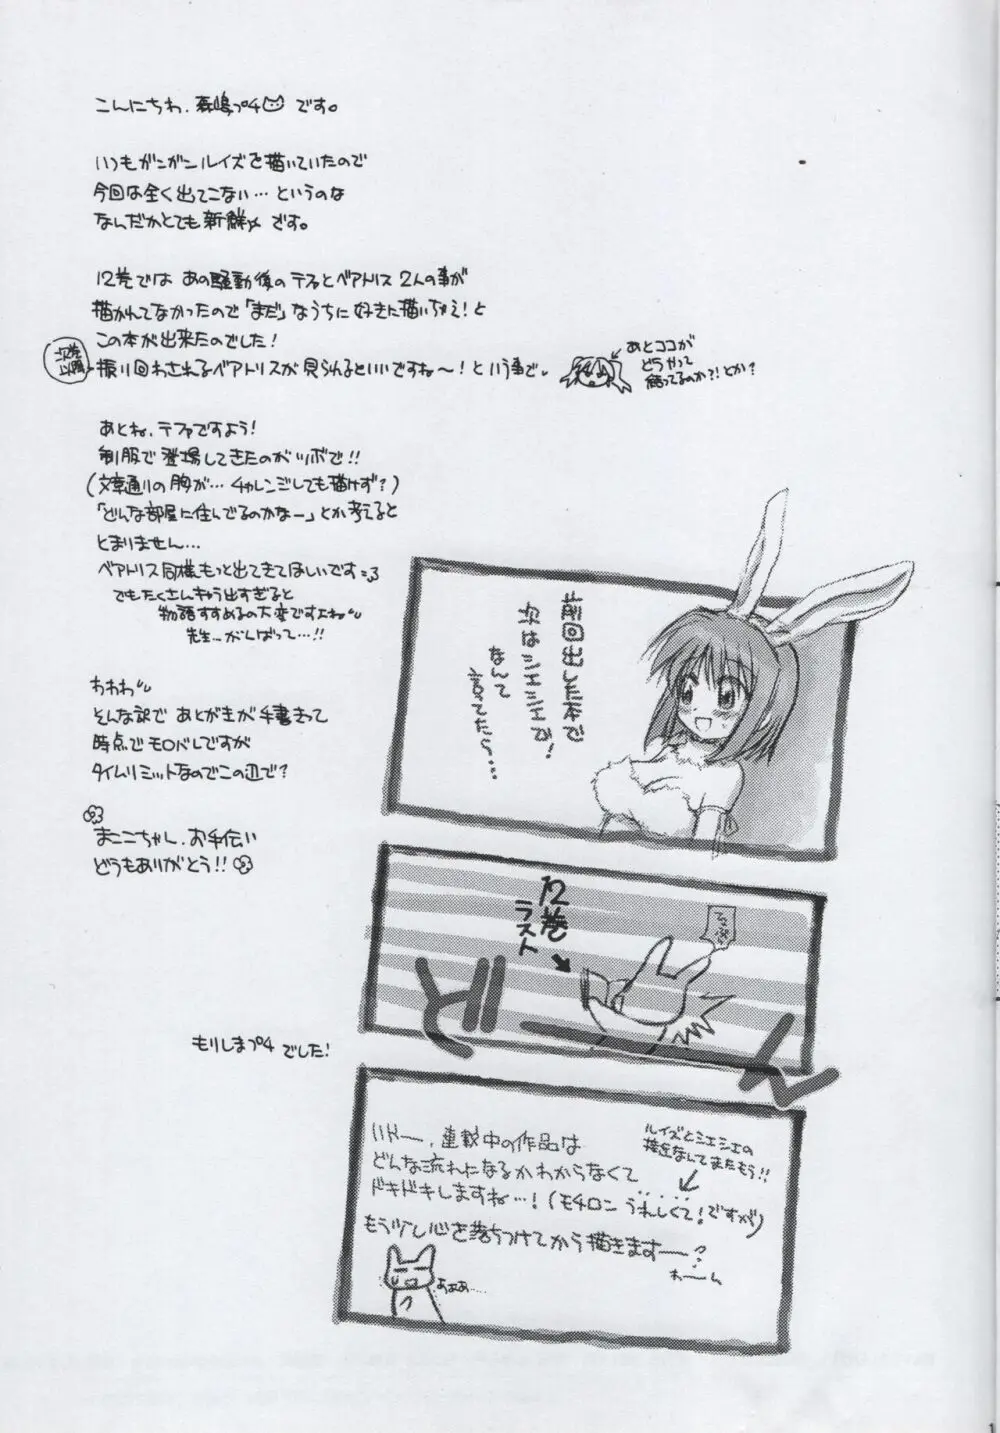 こんにちわ、森嶋プチです。
いつもガンガンルイズを描いていたので
今回は全く出てこない…というのな
なんだかとても新鮮〆です。
12巻では あの騒動後のテファとベアトリス 2人の事が
描かれてなかったので「まだ」なうちに好きに描いちゃえ!と
この本が出来たのでした!
次巻以降
振り回わされるベアトリスが見られるといいですね〜!という事で。
あとココが
どうやって
結ってるのか?!とか?
あとね、テファですよう!
制服で登場してきたのがツボで!!
(文章通りの胸が…チャレンジしても描けず?)
「どんな部屋に住んでるのかなー」とか考えると
とまりません…
ベアトリス同様もっと出てきてほしいです
でもたくさんキャラ出すぎると
物語すすめるの大変ですよね
先生…がんばって…!!
わわわ
そんな訳で あとがきが手書きって
時点でモロバレですが
タイムリミットなのでこの辺で?
まここちゃん、お手伝い
どうもありがとう!!
もりしまプチ でした!
前回出した本で
次はシエシエで!
なんて
言てたら…
12巻
ラスト
ドーン
ハドー、連載中の作品は
どんな流れになるかわからなくて
ドキドキしますね…!(モチロン うれしくて!ですが)
ルイズとシエシエの
接近なんてまたもう!!
もう少し心を落ちつけてから描きますー?
わーん
あぁぁ……